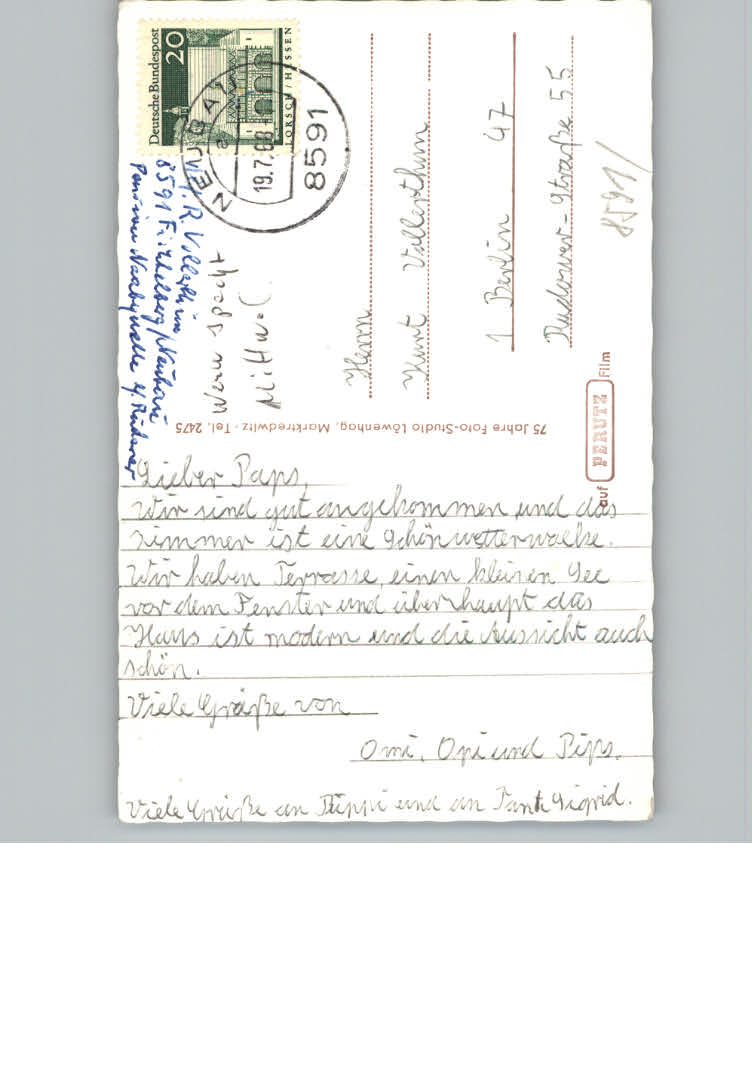 Deutsche Bundespost
20
LORSCH / HESSEN
NEUBAU
19.7.68
8591
R. Vollerthun
8591 Fichtelberg / Neubau
Pension Naabquelle
Wenn
Mittwoch
Herrn
Kurt Vollerthun
1 Berlin 47
Rudower-Straße 55
8591/
75 Jahre Foto-Studio Löwenhag, Marktredwitz · Tel. 2475
auf PERUTZ Film
Lieber Paps,
Wir sind gut angekommen und das
Zimmer ist eine Schönwetterwolke.
Wir haben Terrasse, einen kleinen See
vor dem Fenster und überhaupt das
Haus ist modern und die Aussicht auch
schön.
Viele Grüße von
Omi, Opi und Pips.
Viele Grüße an Püppi und an Tante Sigrid.